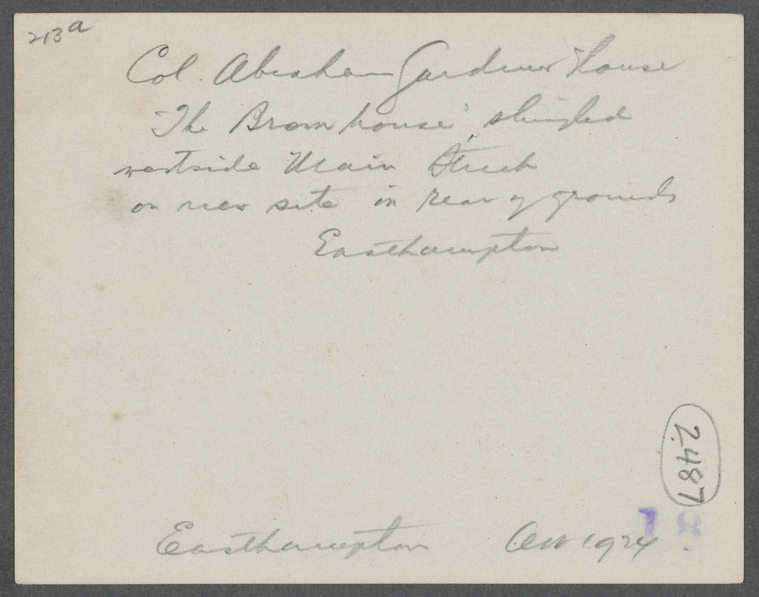 213a
Col. Abraham Gardiner House
"The Brown house", shingled
westside Main Street
on new site in rear of grounds
Easthampton
2487
Easthampton Oct 1924